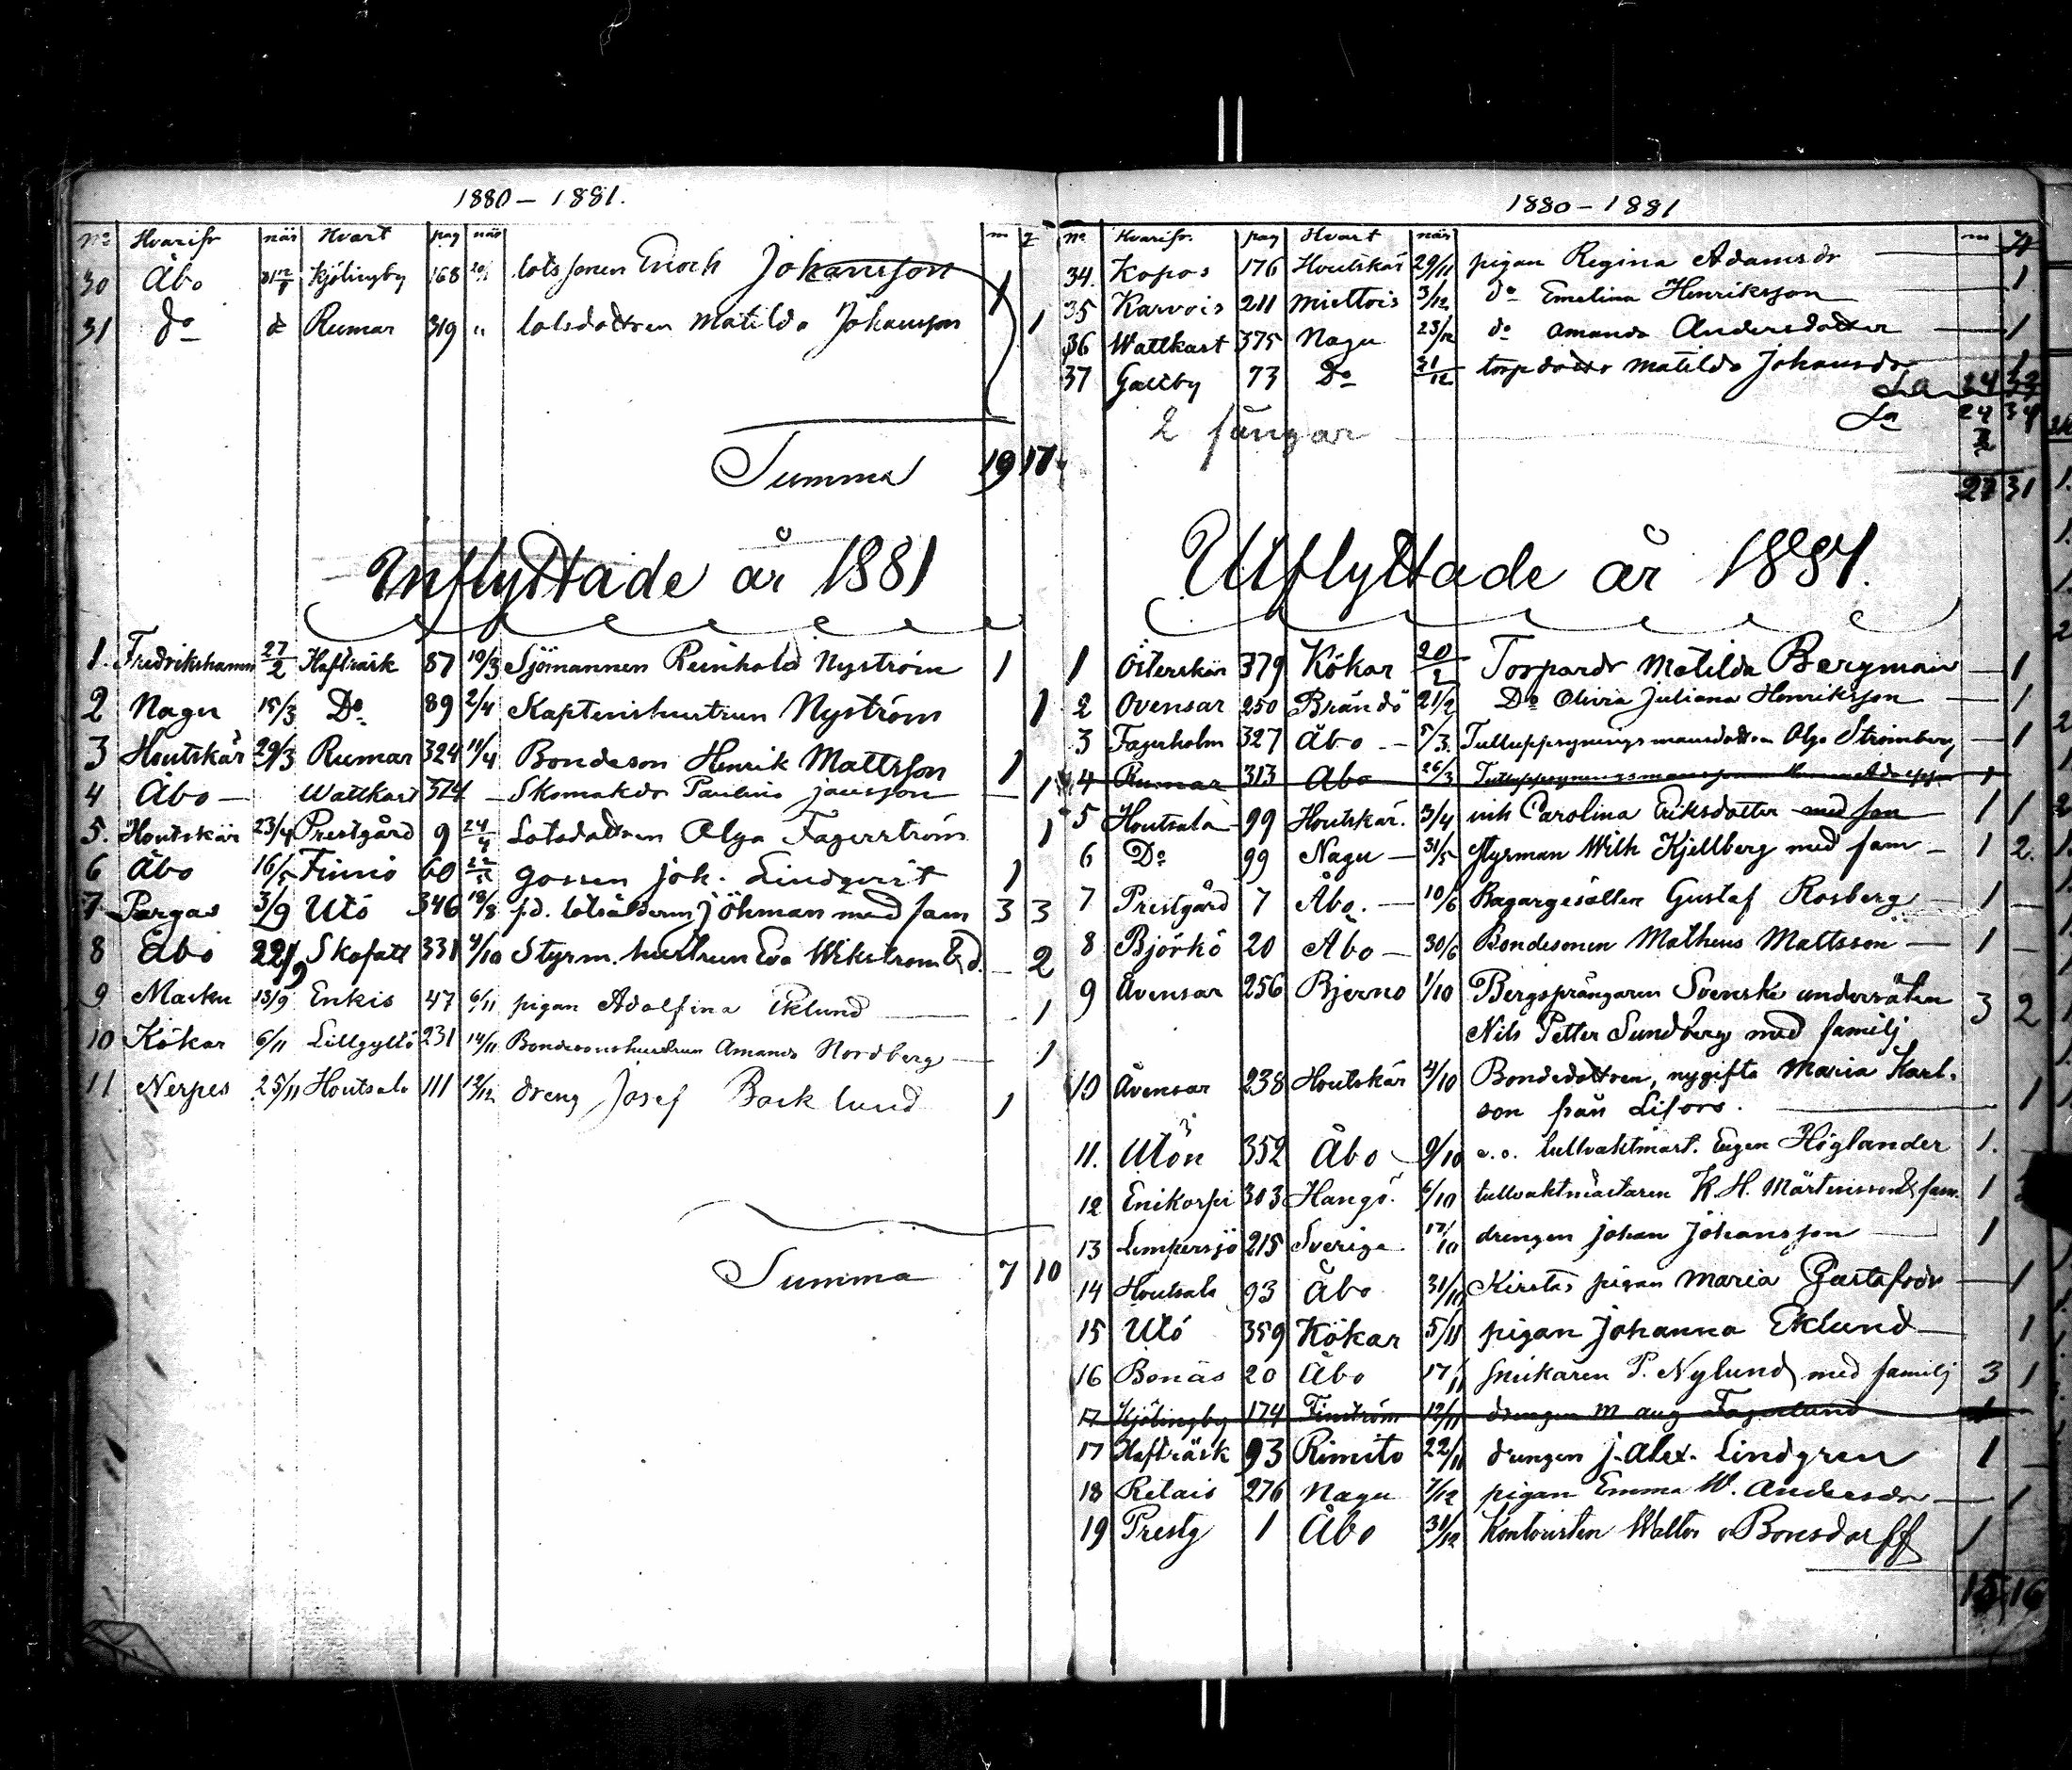 1880 – 1881.
No Hvarifr när Hvart pag när m q
30 Åbo 31 12/1 Kjölingby 168 lotssonen Enoch Johansson 1
31 do d Rumar 319 " lotsdottren Matilda Johansson 1
Summa 19 17
Inflyttade år 1881
1. Fredrikshamn 27/2 Hafträsk 87 10/3 Sjömannen Reinhold Nyström 1
2 Nagu 15/3 Do 89 2/4 Skaptenshustrun Nyström 1
3 Houtskär 29/3 Rumar 324 11/4 Bondeson Henrik Mattsson 1
4 Åbo — Wattkast 374 — Skomakdr Paulina Jansson — 1
5. Houtskär 23/4 Prestgård 9 24/4 Lotsdottren Olga Fagerström 1
6 Åbo 16/5 Finnö 60 gossen Joh. Lindqvist 1
7 Pargas 3/9 Utö 346 18/8 f.d. lotsåldermJ Öhman med fam 3 3
8 Åbo 22/9 Skafatt 331 4/10 Styrm. hustrun Eva Wikstrom & d. — 2
9 Masku 13/9 Enkis 47 6/11 pigan Adolfina Eklund — 1
10 Kökar 6/11 Lillgyltö 231 14/11 Bondesonshustrun Amanda Nordberg — 1
11 Nerpes 25/11 Houtsala 111 12/12 dreng Josef Back lund 1
Summa 7 10
1880 – 1881
No Hvarifr. pag Hvart när m q
34. Kopos 176 Houtskär 29/11 pigan Regina Adamsdr — 1
35 Karvois 211 Miettois 3/12 do Emelina Henriksson
36 Wattkast 375 Nagu 23/12 do Amanda Andersdotter — 1
37 Galtby 73 Do 31/12 torpdottr Matilda Johansdr 1
Sa 24
Sa 24 34
2 fångar 2
27 31
Utflyttade år 1881.
1 Österskär 379 Kökar 20/2 Torpardr Matilda Bergman — 1
2 Ovensar 250 Brändö 21/2 Do Olivia Juliana Henriksson — 1
3 Fagerholm 327 Åbo — 5/3. Tulluppsyningsmansdottren Olga Strömberg — 1
4 Rumar 313 Åbo 26/3 1
5 Houtsala 99 Houtskär. 3/4 inh Carolina Eriksdotter med son 1 1
6 Do 99 Nagu — 31/5 styrman Wilh Kjellberg med fam — 1 2.
7 Prestgård 7 Åbo. — 10/6 Bagargesällen Gustaf Rosberg — 1 —
8 Björkö 20 Åbo — 30/6 Bondesonen Matheus Mattsson — 1 —
9 Åvensar 256 Bjerno 1/10 Bergsprängaren Svenske undersåten 3 2
Nils Petter Sundberg med familj
10 Åvensar 238 Houtskär 4/10 Bondedottren, nygifta Maria Karl-
son från Lifors. — 1
11. Utön 352 Åbo 9/10 e.o. tullvaktmäst. Eugen Höglander 1.
12 Enikorpi 303 Hangö. 6/10 tullvaktmästaren K.H. Mårtensson & fam. 1
13 Lempersjö 215 Sverige 17/10 drengen Johan Johansson — 1
14 Houtsala 93 Åbo 31/10 Kirstas pigan Maria Gustafsdr — 1
15 Utö 359 Kökar 5/11 pigan Johanna Eklund — 1
16 Benäs 20 Åbo 17/11 snickaren P. Nylund med familj 3 1
17 Kjölingby 174 Finström 12/11 drengen M Aug Fagerlund 1
17 Hafträsk 93 Rimito 22/11 drengen J. Alex. Lindgren 1 —
18 Relais 276 Nagu 7/12 pigan Emma W. Andersdr — 1
19 Prestg 1 Åbo 31/12 Kontoristen Walter v Bonsdorff 1
15 16